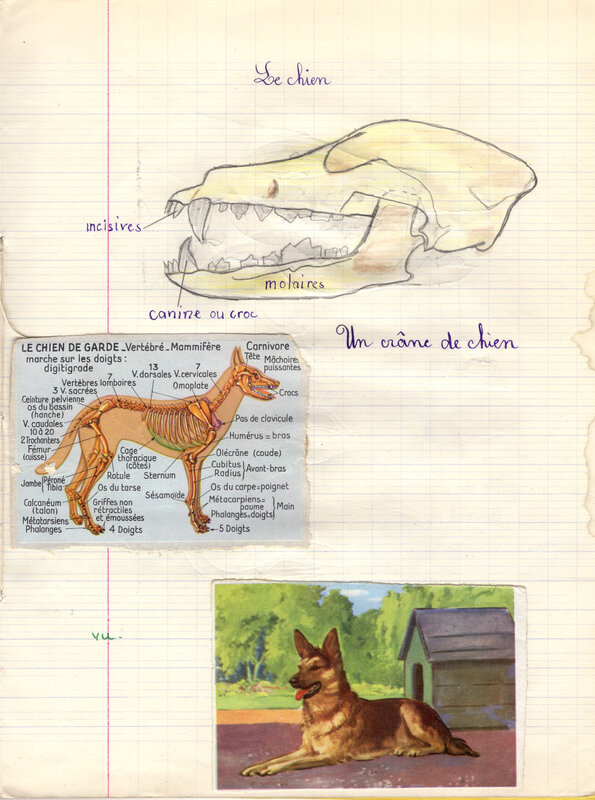 Le chien
incisives
molaires
canine ou croc
Un crâne de chien
LE CHIEN DE GARDE _ Vertébré _ Mammifère
Carnivore
marche sur les doigts :
digitigrade
Tête
Mâchoire
puissantes
7
Vertèbres lombaires
13
V. dorsales
7
V. cervicales
3 V. sacrées
Omoplate
Crocs
Ceinture pelvienne
os du bassin
(hanche)
V. caudales
10 à 20
2 Trochanters
Fémur
(cuisse)
Pas de clavicule
Humérus = bras
Cage
thoracique
(côtes)
Olécrâne (coude)
Cubitus
Radius
Avant-bras
Jambe
Péroné
Tibia
Rotule
Sternum
Os du tarse
Sésamoïde
Os du carpe = poignet
Calcanéum
(talon)
Griffes non
rétractiles
et émoussées
Métacarpiens =
paume
Phalanges = doigts
Main
Métatarsiens
Phalanges
4 Doigts
5 Doigts
vu.